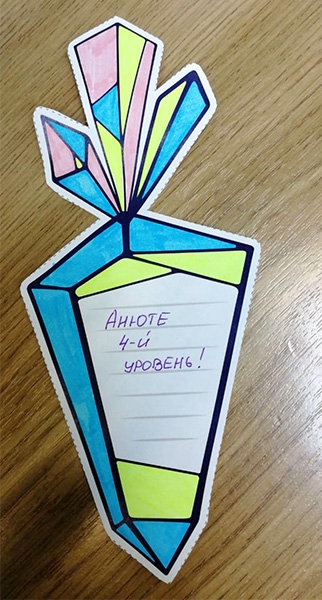 АНЮТЕ
4-й
УРОВЕНЬ!